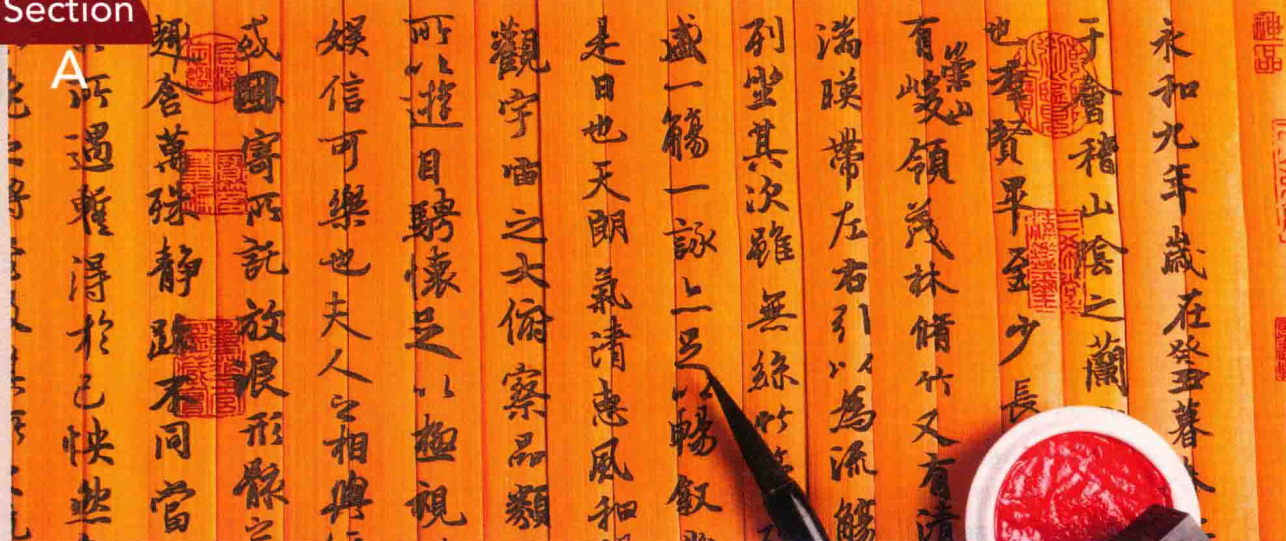 Section
A
永和九年歲在癸丑暮
于會稽山陰之蘭
也羣賢畢至少長
有崇山峻領茂林脩竹又有清
湍暎帶左右引以為流觴
列坐其次雖無絲竹
盛一觴一詠亦足以暢叙
是日也天朗氣清惠風和
觀宇宙之大俯察品類
所以遊目騁懷足以極視
娛信可樂也夫人之相與
或因寄所託放浪形骸之
趣舍萬殊靜躁不同當
所遇暫得於己怏然
神品